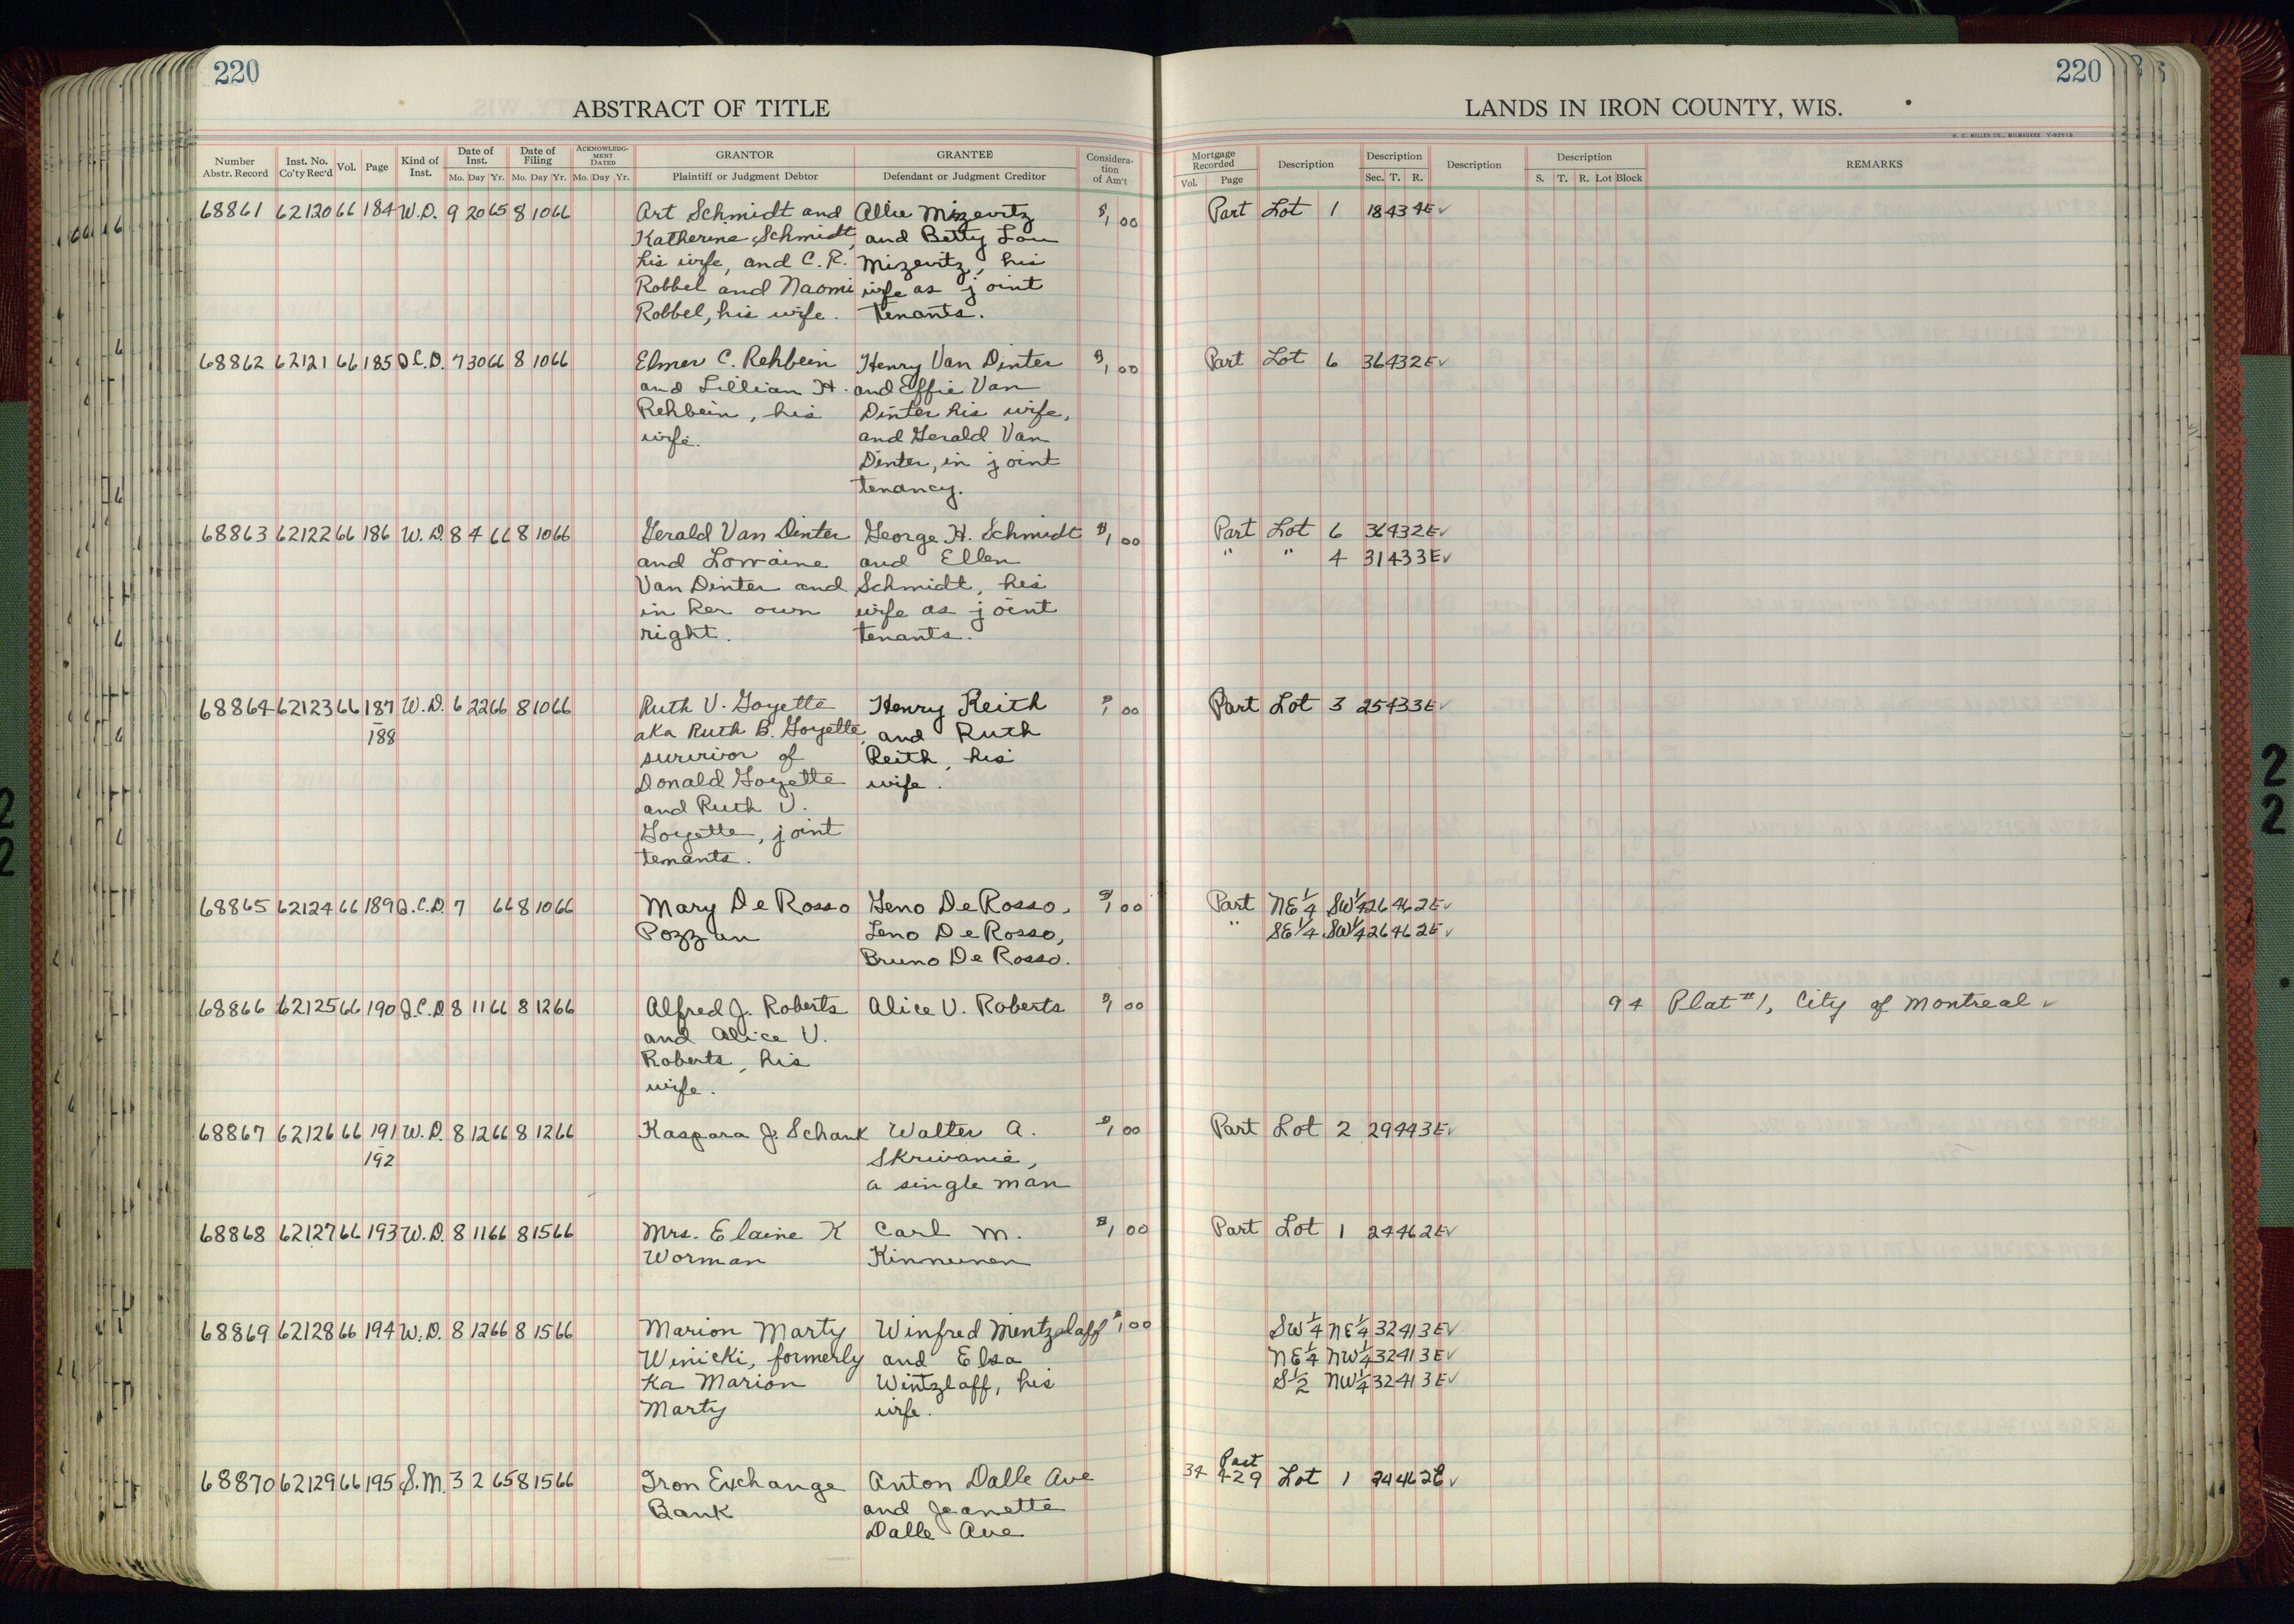 220
220
ABSTRACT OF TITLE
LANDS IN IRON COUNTY, WIS.
H. C. MILLER CO., MILWAUKEE
Number Abstr. Record Inst. No. Co'ty Rec'd Vol. Page Kind of Inst. Date of Inst. Mo. Day Yr. Date of Filing Mo. Day Yr. ACKNOWLEDGMENT DATED Mo. Day Yr. GRANTOR Plaintiff or Judgment Debtor GRANTEE Defendant or Judgment Creditor Consideration of Am't
Mortgage Recorded Vol. Page Description Description Sec. T. R. Description Description S. T. R. Lot Block REMARKS
68861 62120 66 184 W.D. 9 20 65 8 10 66 Art Schmidt and Allie Mizevitz $1 00 Part Lot 1 18 43 4E ✓
Katherine Schmidt, and Betty Lou
his wife, and C. R. Mizevitz, his
Robbel and Naomi wife as joint
Robbel, his wife. tenants.
68862 62121 66 185 Q.C.D. 7 30 66 8 10 66 Elmer C. Rehbein Henry Van Dinter $1 00 Part Lot 6 36 43 2E ✓
and Lillian H. and Effie Van
Rehbein, his Dinter his wife,
wife. and Gerald Van
Dinter, in joint
tenancy.
68863 62122 66 186 W.D. 8 4 66 8 10 66 Gerald Van Dinter George H. Schmidt $1 00 Part Lot 6 36 43 2E ✓
and Lorraine and Ellen " " 4 31 43 3E ✓
Van Dinter and Schmidt, his
in her own wife as joint
right. tenants.
68864 62123 66 187 W.D. 6 22 66 8 10 66 Ruth V. Goyette Henry Reith $1 00 Part Lot 3 25 43 3E ✓
188 aka Ruth B. Goyette, and Ruth
survivor of Reith, his
Donald Goyette wife.
and Ruth V.
Goyette, joint
tenants.
68865 62124 66 189 Q.C.D. 7 66 8 10 66 Mary De Rosso Geno De Rosso, $1 00 Part NE 1/4 SW 1/4 26 46 2E ✓
Pozzan Leno De Rosso, " SE 1/4 SW 1/4 26 46 2E ✓
Bruno De Rosso.
68866 62125 66 190 Q.C.D. 8 11 66 8 12 66 Alfred J. Roberts Alice V. Roberts $1 00 94 Plat #1, City of Montreal ✓
and Alice V.
Roberts, his
wife.
68867 62126 66 191 W.D. 8 12 66 8 12 66 Kaspara J. Schank Walter A. $1 00 Part Lot 2 29 44 3E ✓
192 Skrivanie,
a single man
68868 62127 66 193 W.D. 8 11 66 8 15 66 Mrs. Elaine K Carl M. $1 00 Part Lot 1 24 46 2E ✓
Worman Kinnunen
68869 62128 66 194 W.D. 8 12 66 8 15 66 Marion Marty Winfred Mentzlaff $1 00 SW 1/4 NE 1/4 32 41 3E ✓
Winicki, formerly and Elsa NE 1/4 NW 1/4 32 41 3E ✓
Ka Marion Wintzlaff, his S 1/2 NW 1/4 32 41 3E ✓
Marty wife.
68870 62129 66 195 S.M. 3 2 65 8 15 66 Iron Exchange Anton Dalle Ave 34 429 Part Lot 1 24 46 2E ✓
Bank and Jeanette
Dalle Ave